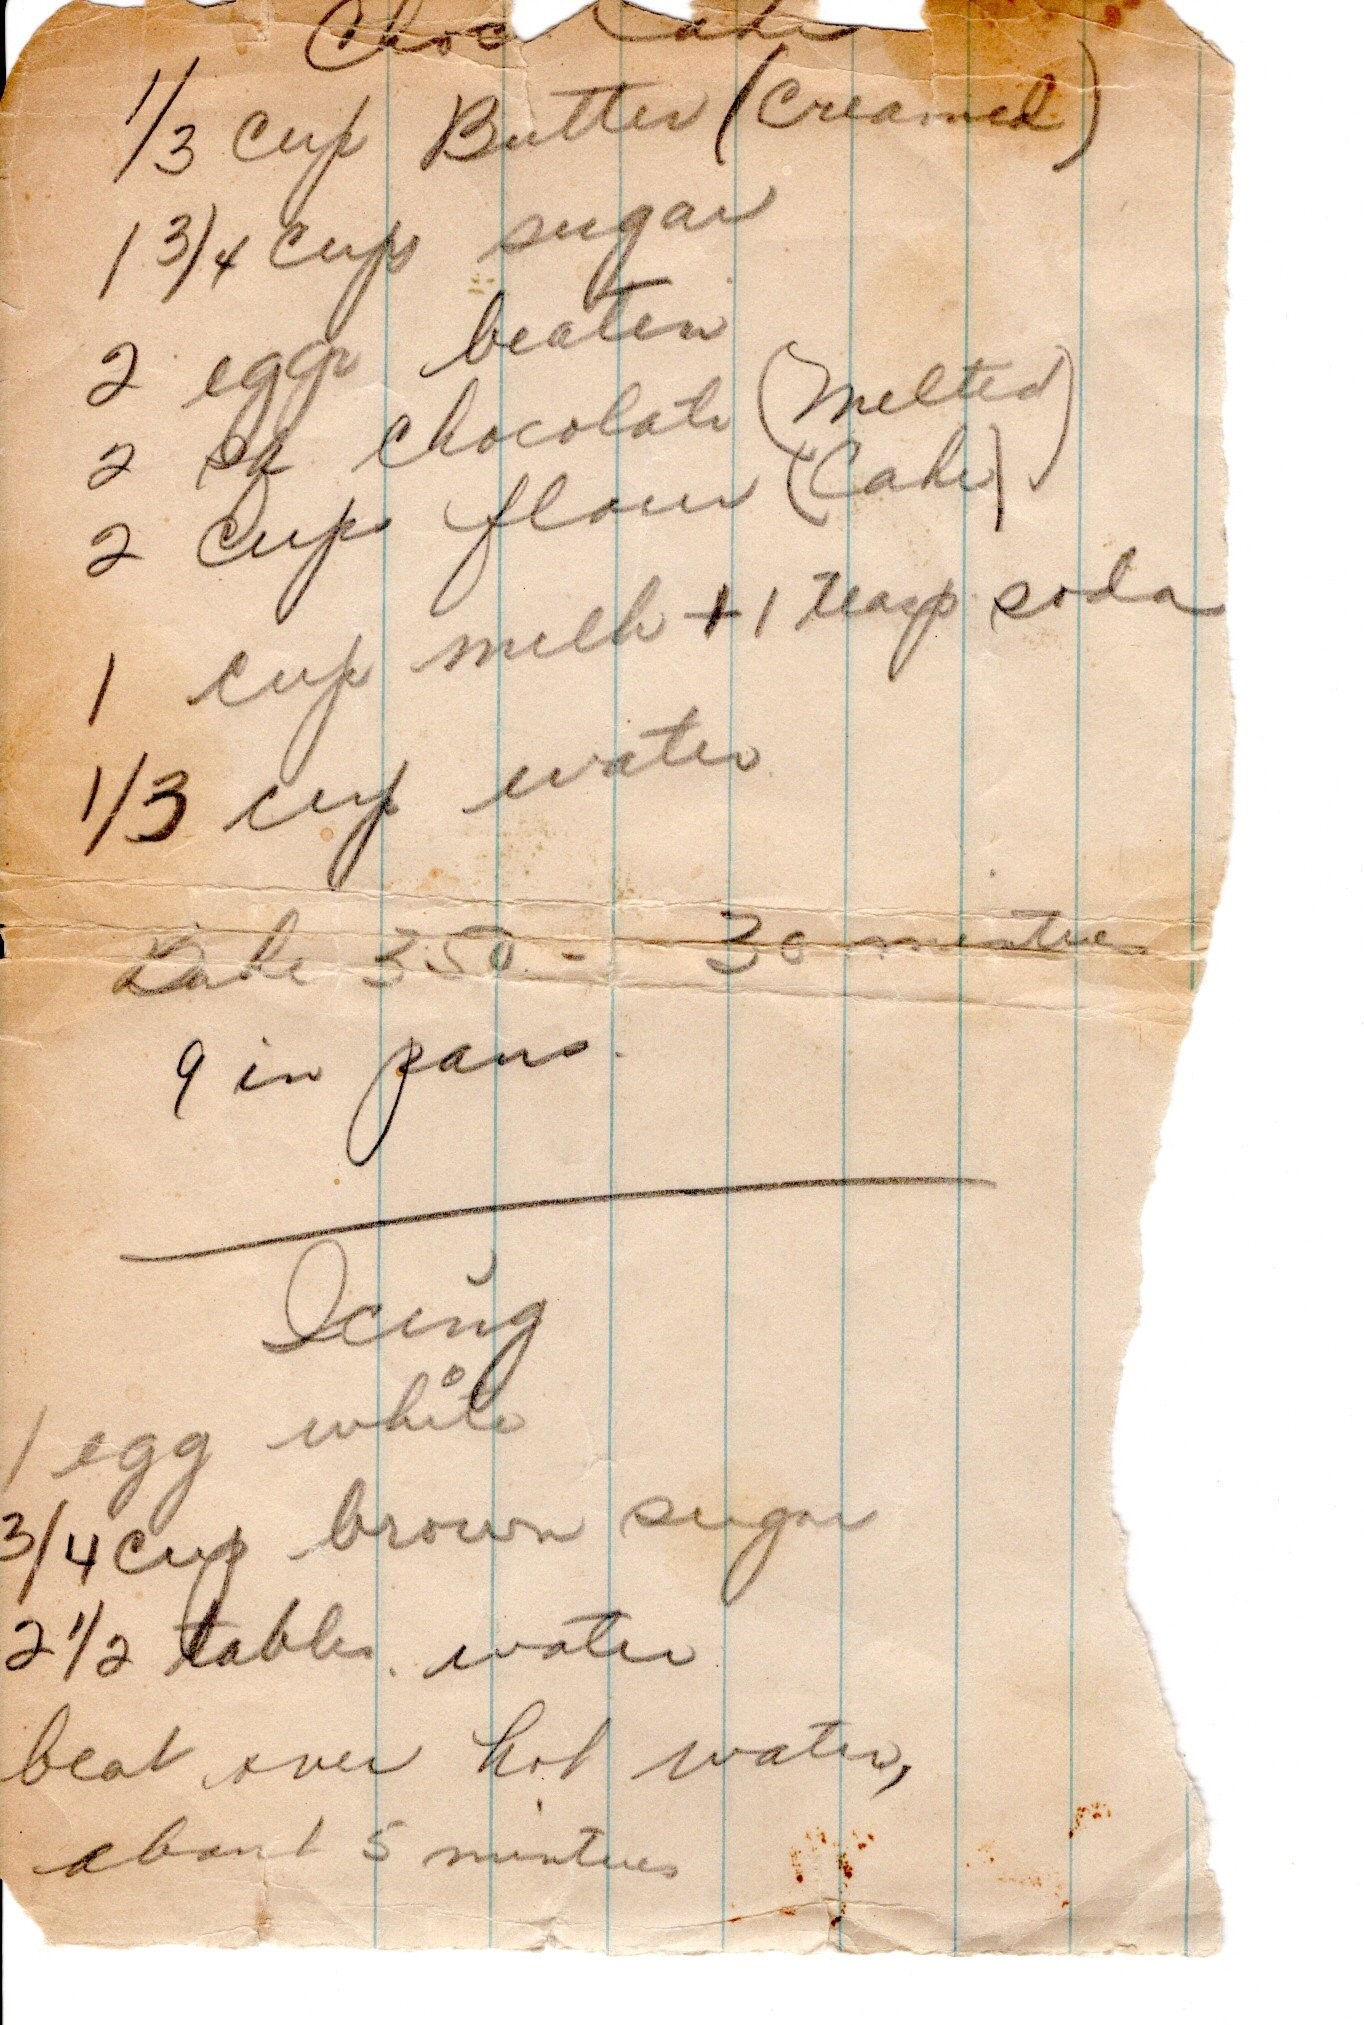 Choc Cake
1/3 cup Butter (Creamed)
1 3/4 cups sugar
2 eggs beaten
2 sq chocolate (Melted)
2 Cups flour (Cake)
1 cup milk + 1 teasp soda
1/3 cup water
Bake 350 - 30 mintues
9 in pans.
Icing
1 egg white
3/4 cup brown sugar
2 1/2 tables. water
beat over hot water,
about 5 mintues